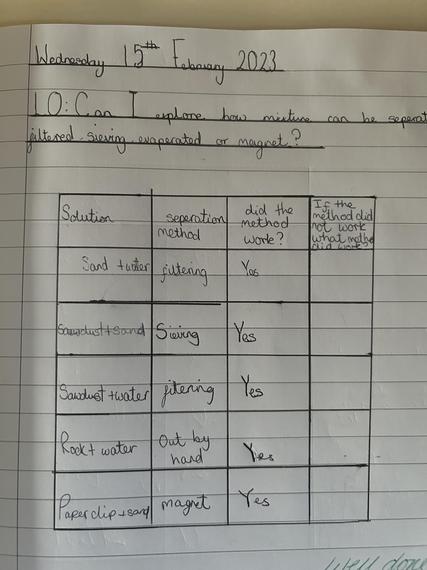 Wednesday 15th February 2023
LO: Can I explore how mixture can be seperat
filtered sieving evaporated or magnet?
Solution
seperation method
did the method work?
If the method did not work what methe did work?
Sand + water
filtering
Yes
Sawdust + sand
Sieving
Yes
Sawdust + water
filtering
Yes
Rock + water
Out by hand
Yes
Paper clip + sand
magnet
Yes
Well done